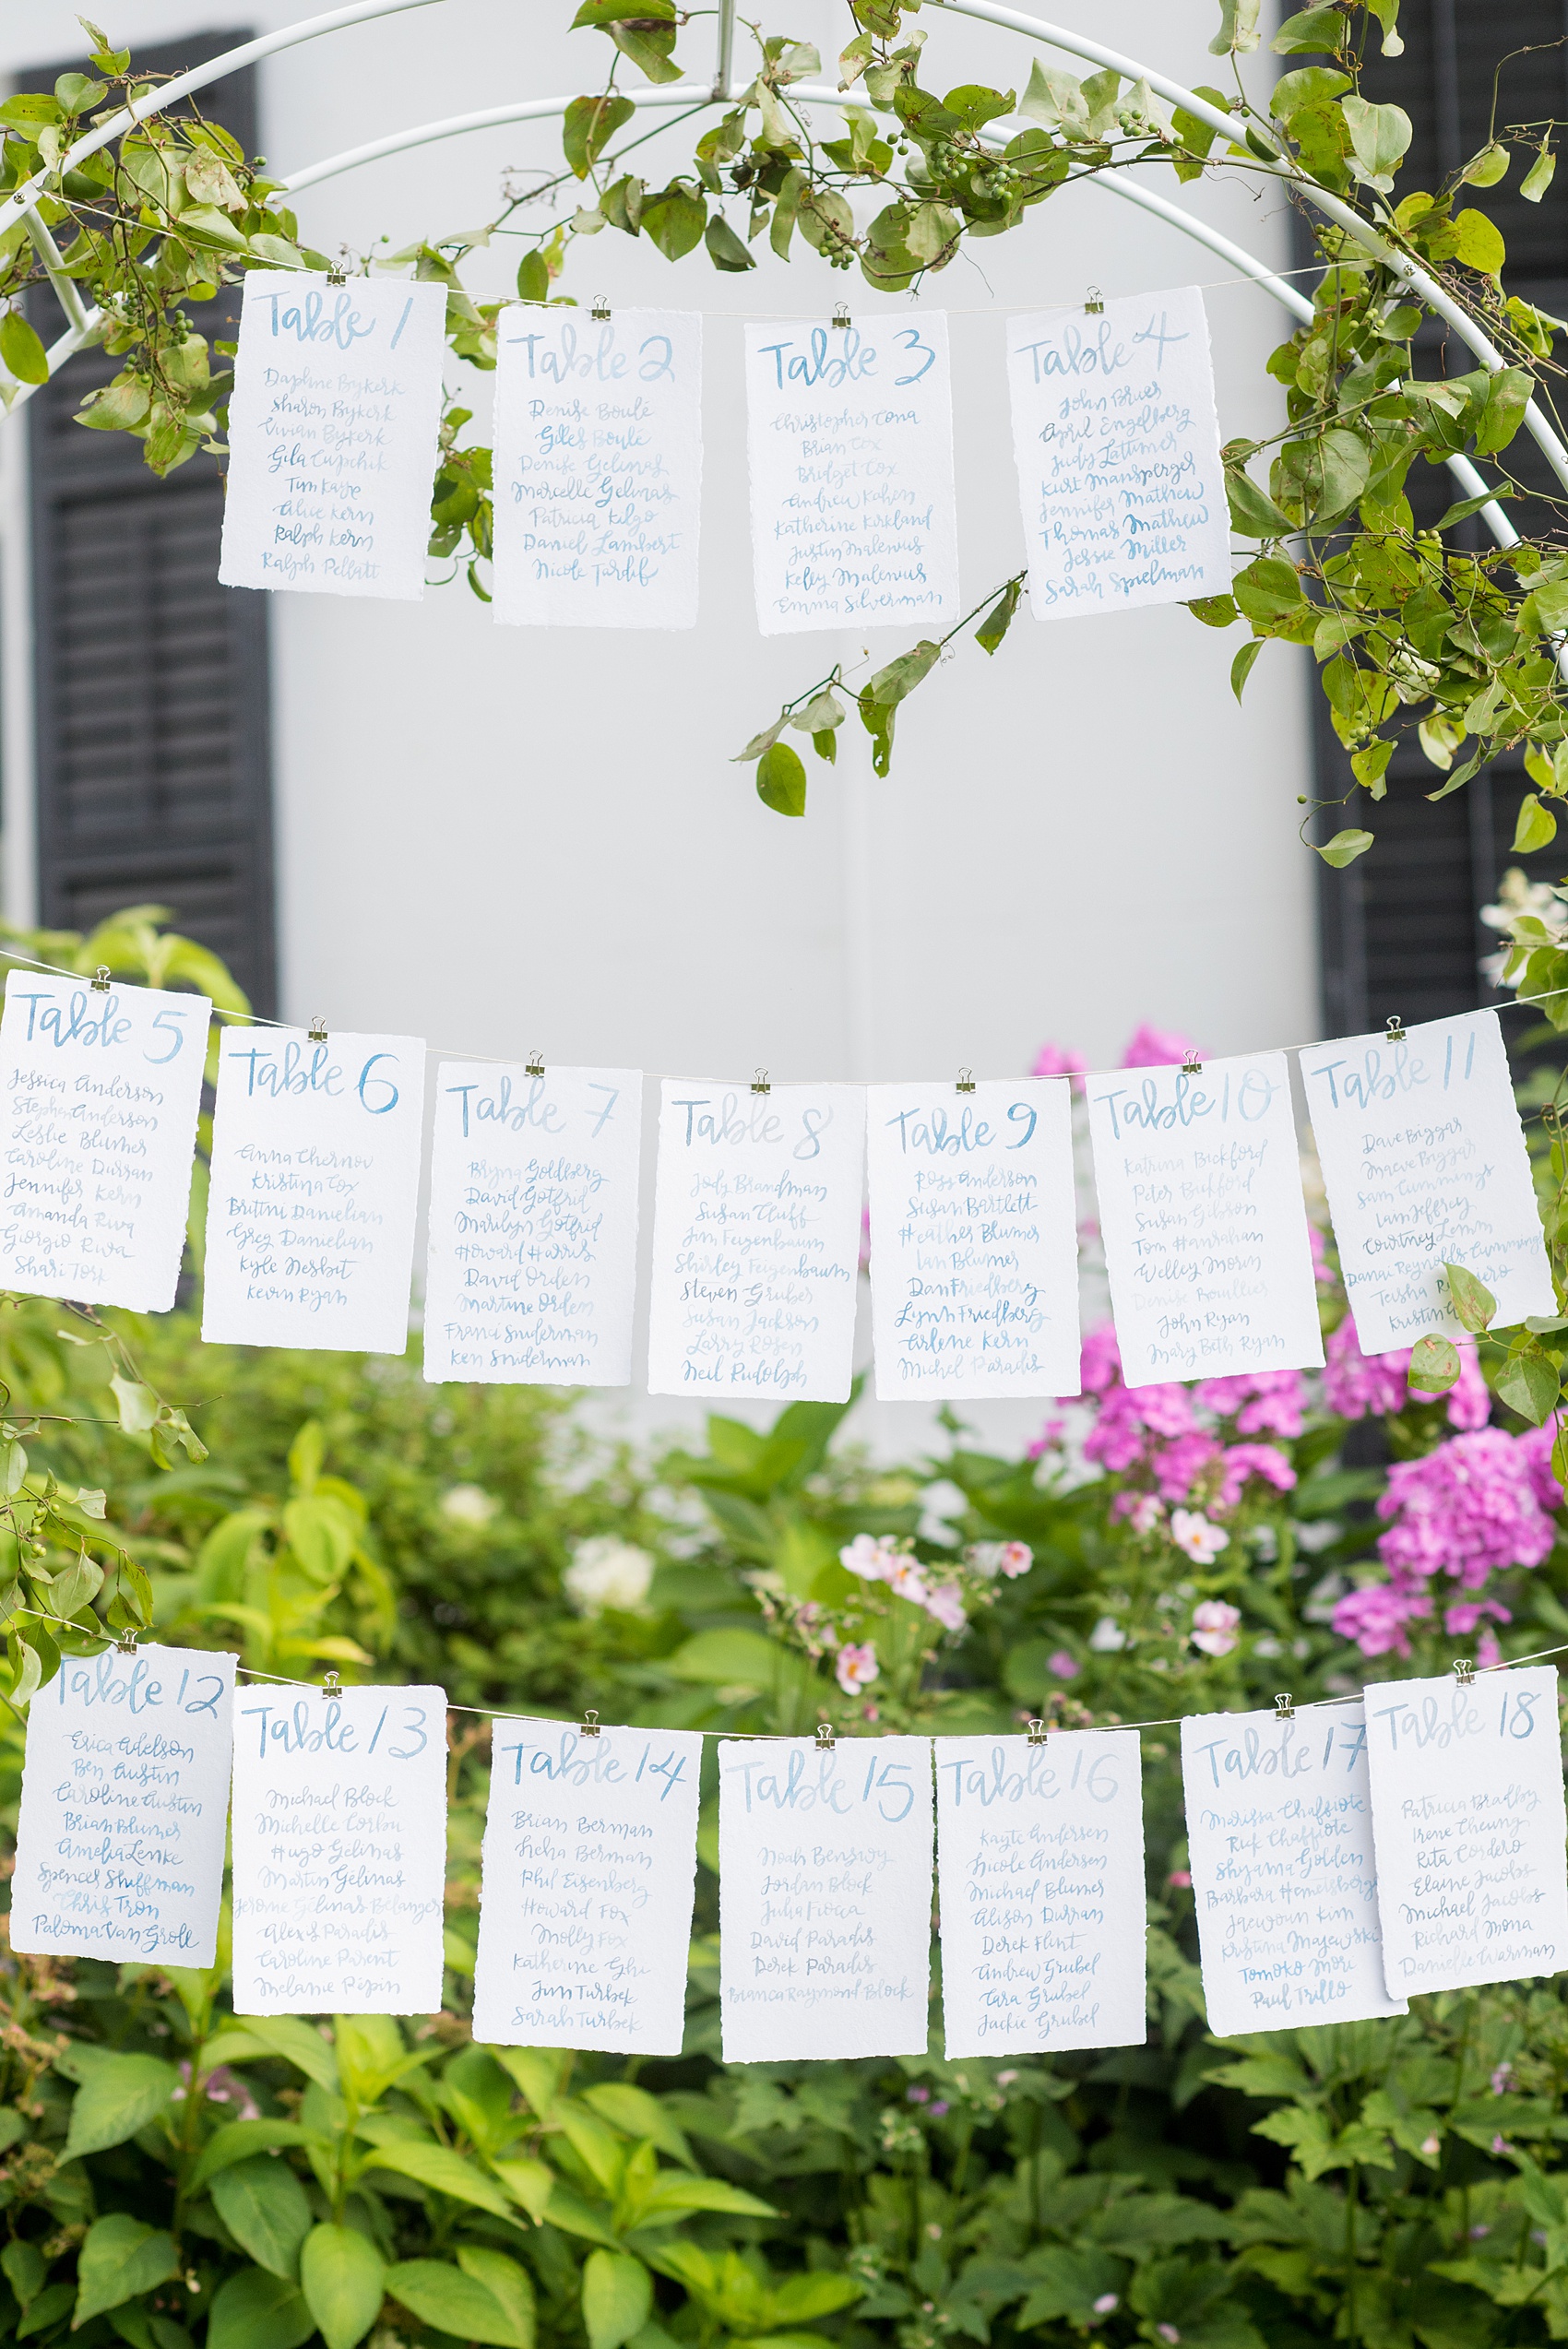 Table 1
Daphne Bykerk
Sharon Bykerk
Vivian Bykerk
Gila Cupchik
Tim Kaye
Alice Kern
Ralph Kern
Ralph Pellatt
Table 2
Denise Boulé
Giles Boulé
Denise Gelinas
Marcelle Gelinas
Patricia Kilgo
Daniel Lambert
Nicole Tardif
Table 3
Christopher Cona
Brian Cox
Bridget Cox
Andrew Kahen
Katherine Kirkland
Justin Malenius
Kelly Malenius
Emma Silverman
Table 4
John Brues
April Engelberg
Judy Lattimer
Kurt Mansperger
Jennifer Mathew
Thomas Mathew
Jessie Miller
Sarah Spielman
Table 5
Jessica Anderson
Stephen Anderson
Leslie Blumer
Caroline Durran
Jennifer Kern
Amanda Riva
Giorgio Riva
Shari Tork
Table 6
Anna Chernov
Kristina Cox
Brittni Danielian
Greg Danielian
Kyle Nesbit
Kevin Ryan
Table 7
Bryna Goldberg
David Gotfrid
Marilyn Gotfrid
Howard Harris
David Orden
Martine Orden
Franci Sniderman
Ken Sniderman
Table 8
Jody Brandman
Susan Cluff
Jim Feigenbaum
Shirley Feigenbaum
Steven Gruber
Susan Jackson
Larry Rosen
Neil Rudolph
Table 9
Ross Anderson
Susan Bartlett
Heather Blumer
Ian Blumer
Dan Friedberg
Lynn Friedberg
Arlene Kern
Michel Paradis
Table 10
Katrina Bickford
Peter Bickford
Susan Gibson
Tom Hanrahan
Welley Morin
Denise Bouillier
John Ryan
Mary Beth Ryan
Table 11
Dave Biggar
Maeve Biggar
Sam Cummings
Iam Jeffrey
Courtney Lemm
Danai Reynolds Cumming
Teisha
Kristin
Table 12
Erica Adelson
Ben Austin
Caroline Austin
Brian Blumer
Amelia Lenke
Spencer Shiffman
Chris Tron
Paloma Van Groll
Table 13
Michael Block
Michelle Corbu
Hugo Gélinas
Martin Gélinas
Jerome Gélinas Bélanger
Alexis Paradis
Caroline Parent
Melanie Pépin
Table 14
Brian Berman
Neha Berman
Phil Eisenberg
Howard Fox
Molly Fox
Katherine Ghi
Jim Turbek
Sarah Turbek
Table 15
Noah Benswy
Jordan Block
Julia Fioca
David Paradis
Derek Paradis
Bianca Raymond Block
Table 16
Kayte Andersen
Nicole Andersen
Michael Blumer
Alison Durran
Derek Flint
Andrew Grubel
Cara Grubel
Jackie Grubel
Table 17
Marissa Chaffiote
Rick Chaffiote
Shyama Golden
Barbara Hemelsberg
Jaewoun Kim
Kristina Majewski
Tomoko Mori
Paul Trillo
Table 18
Patricia Bradby
Irene Cheung
Rita Cordero
Elaine Jacobs
Michael Jacobs
Richard Mona
Danielle Warman